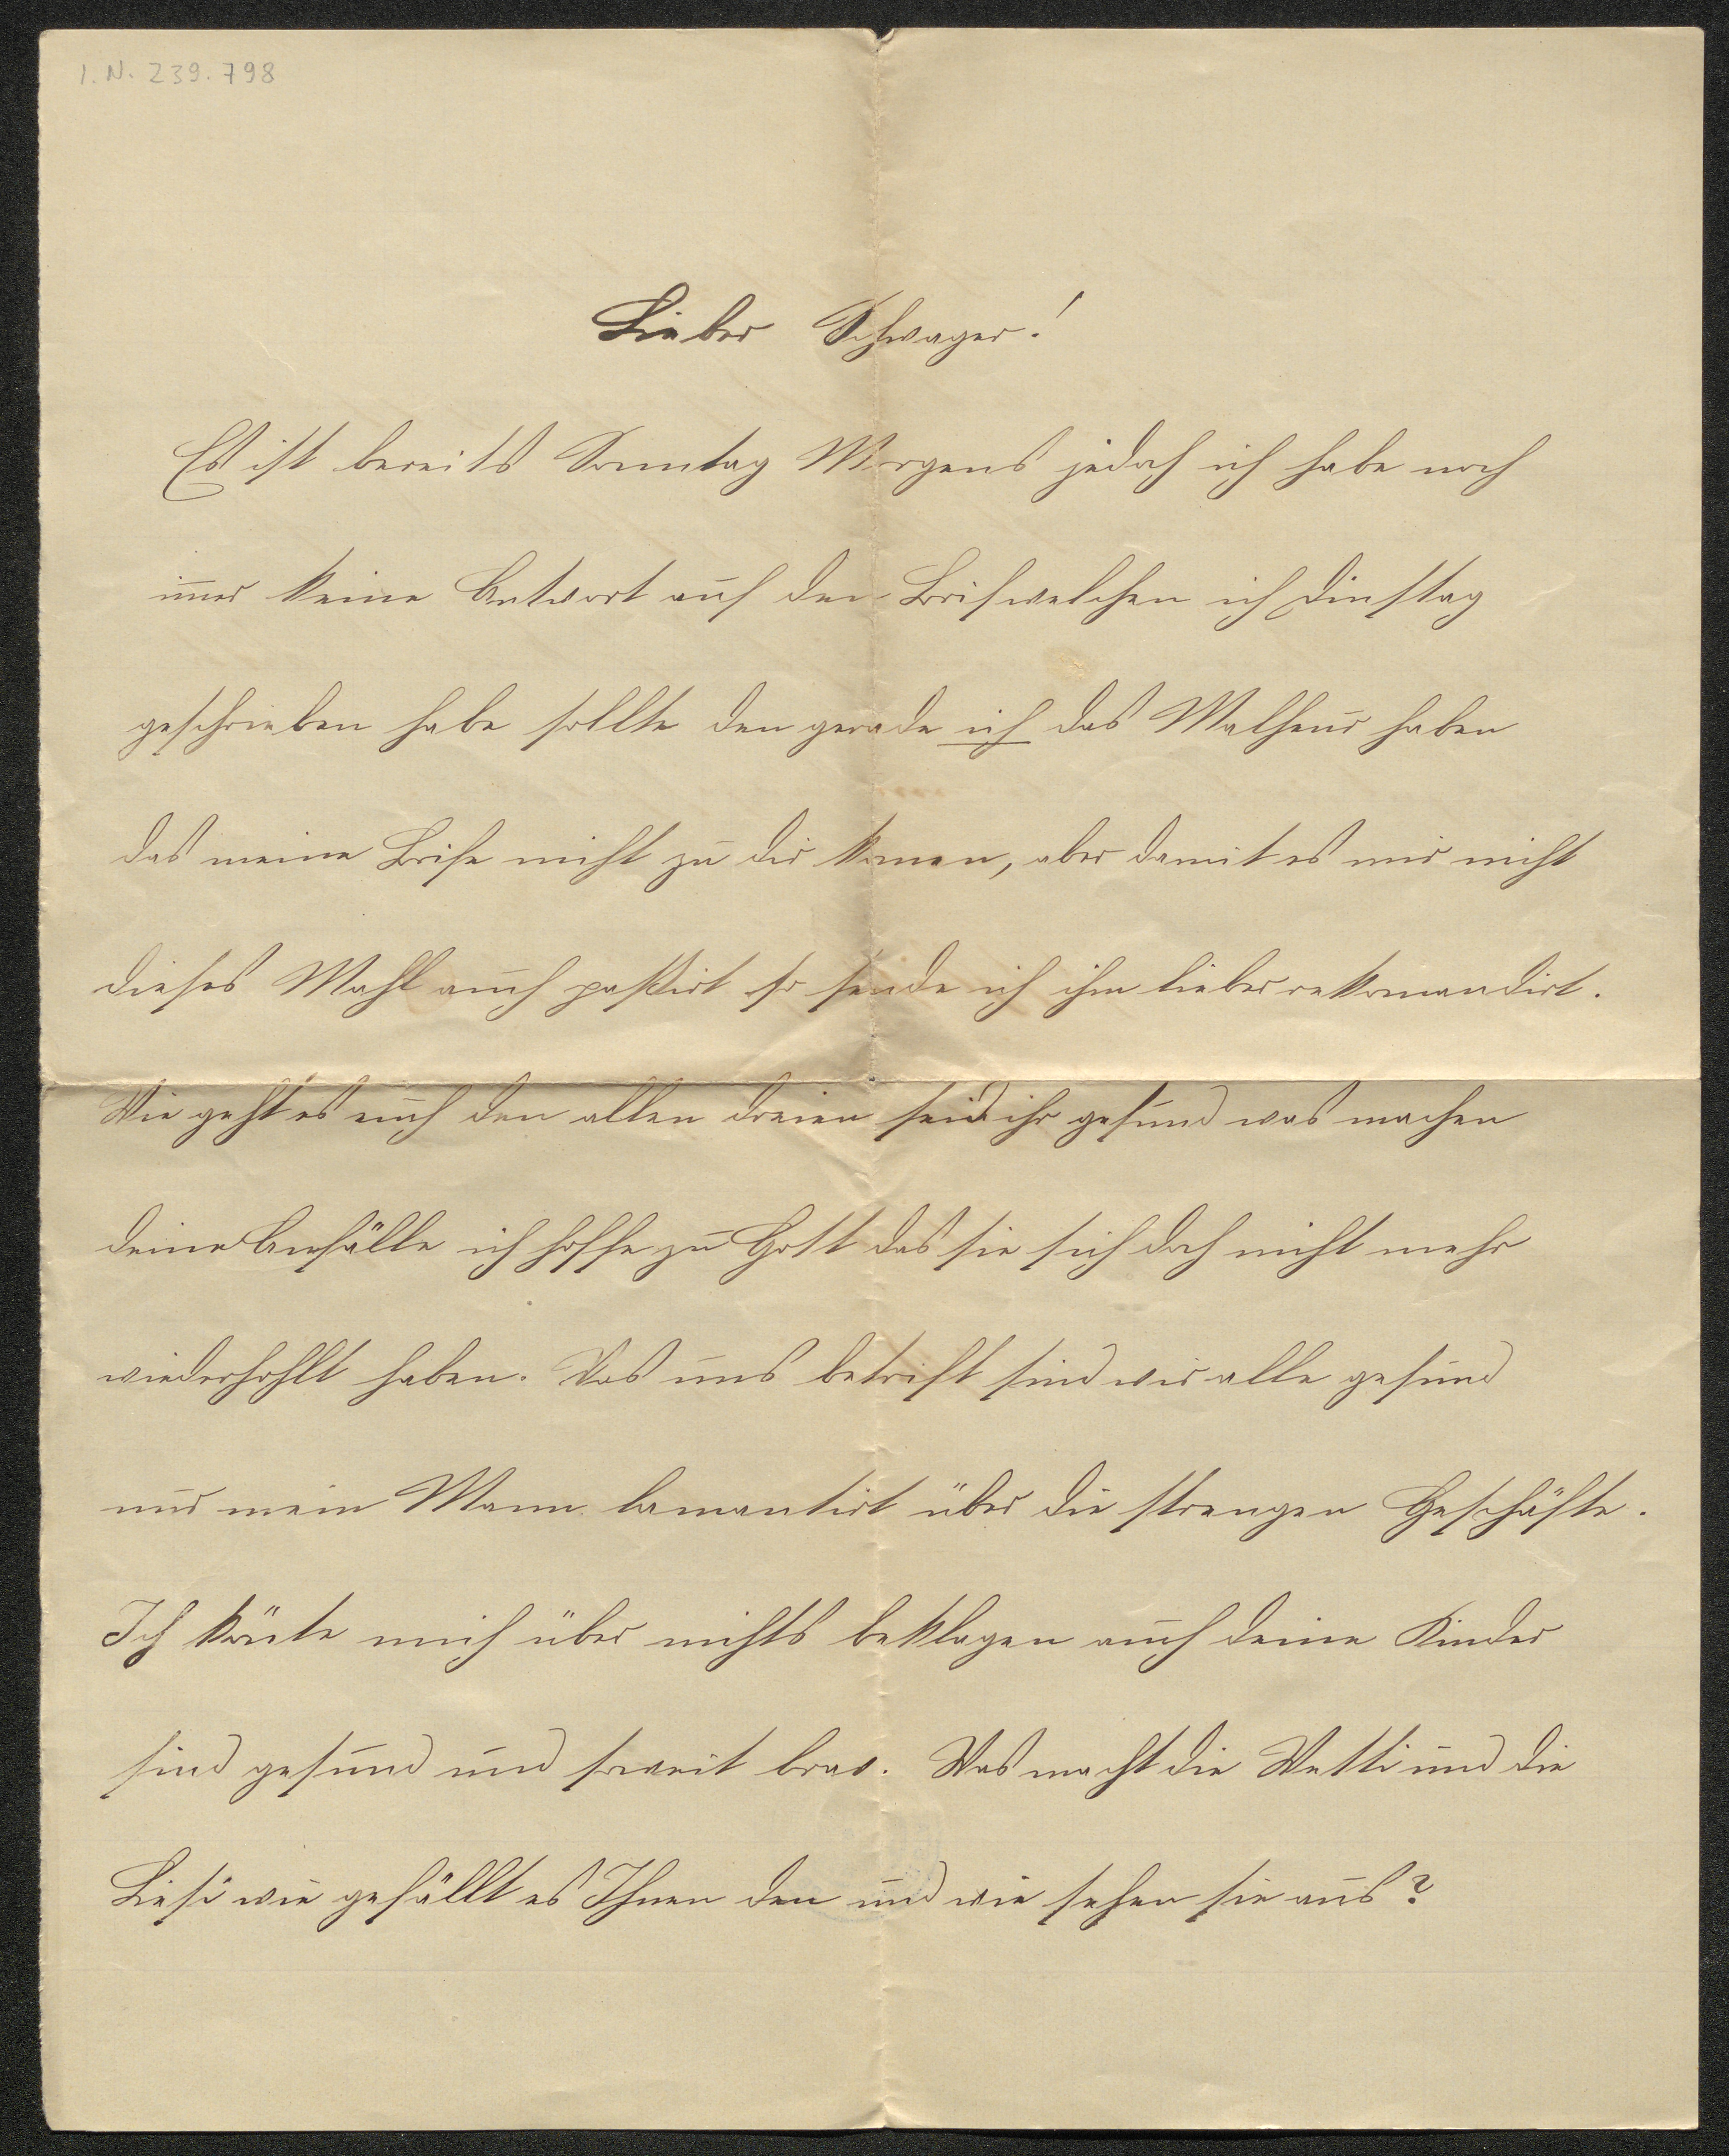 I.N. 239.798
Lieber Schwager!
Es ist bereits Sonntag Morgens jedoch ich habe noch
im̅er keine Antwort auf den Brif welchen ich Dinstag
geschrieben habe sollte den gerade ich das Malheur haben
das meine Brife nicht zu dir kom̅en, aber damit es mir nicht
dieses Mahl auch paßirt so sende ich ihn lieber rekomandirt.
Wie geht es euch den allen dreien seid ihr gesund was machen
deine Anfälle ich hoffe zu Gott das sie sich doch nicht mehr
wiederhohlt haben. Was uns betrift sind wir alle gesund
nur mein Mann lamantirt über die strengen Geschäfte.
Ich kön̅te mich über nichts beklagen auch deine Kinder
sind gesund und soweit brav. Was macht die Netti und die
Liesi wie gefällt es Ihnen den und wie sehen sie aus?